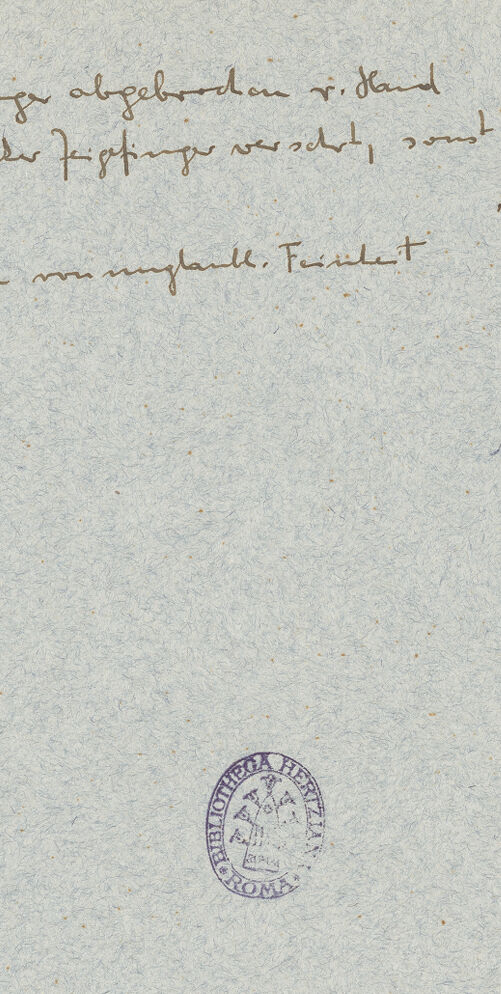 nger abgebrochen r. Hand
der Zeigefinger versehrt, sonst
von unglaubl. Feinheit
BIBLIOTHECA HERTZIAN
ROMA